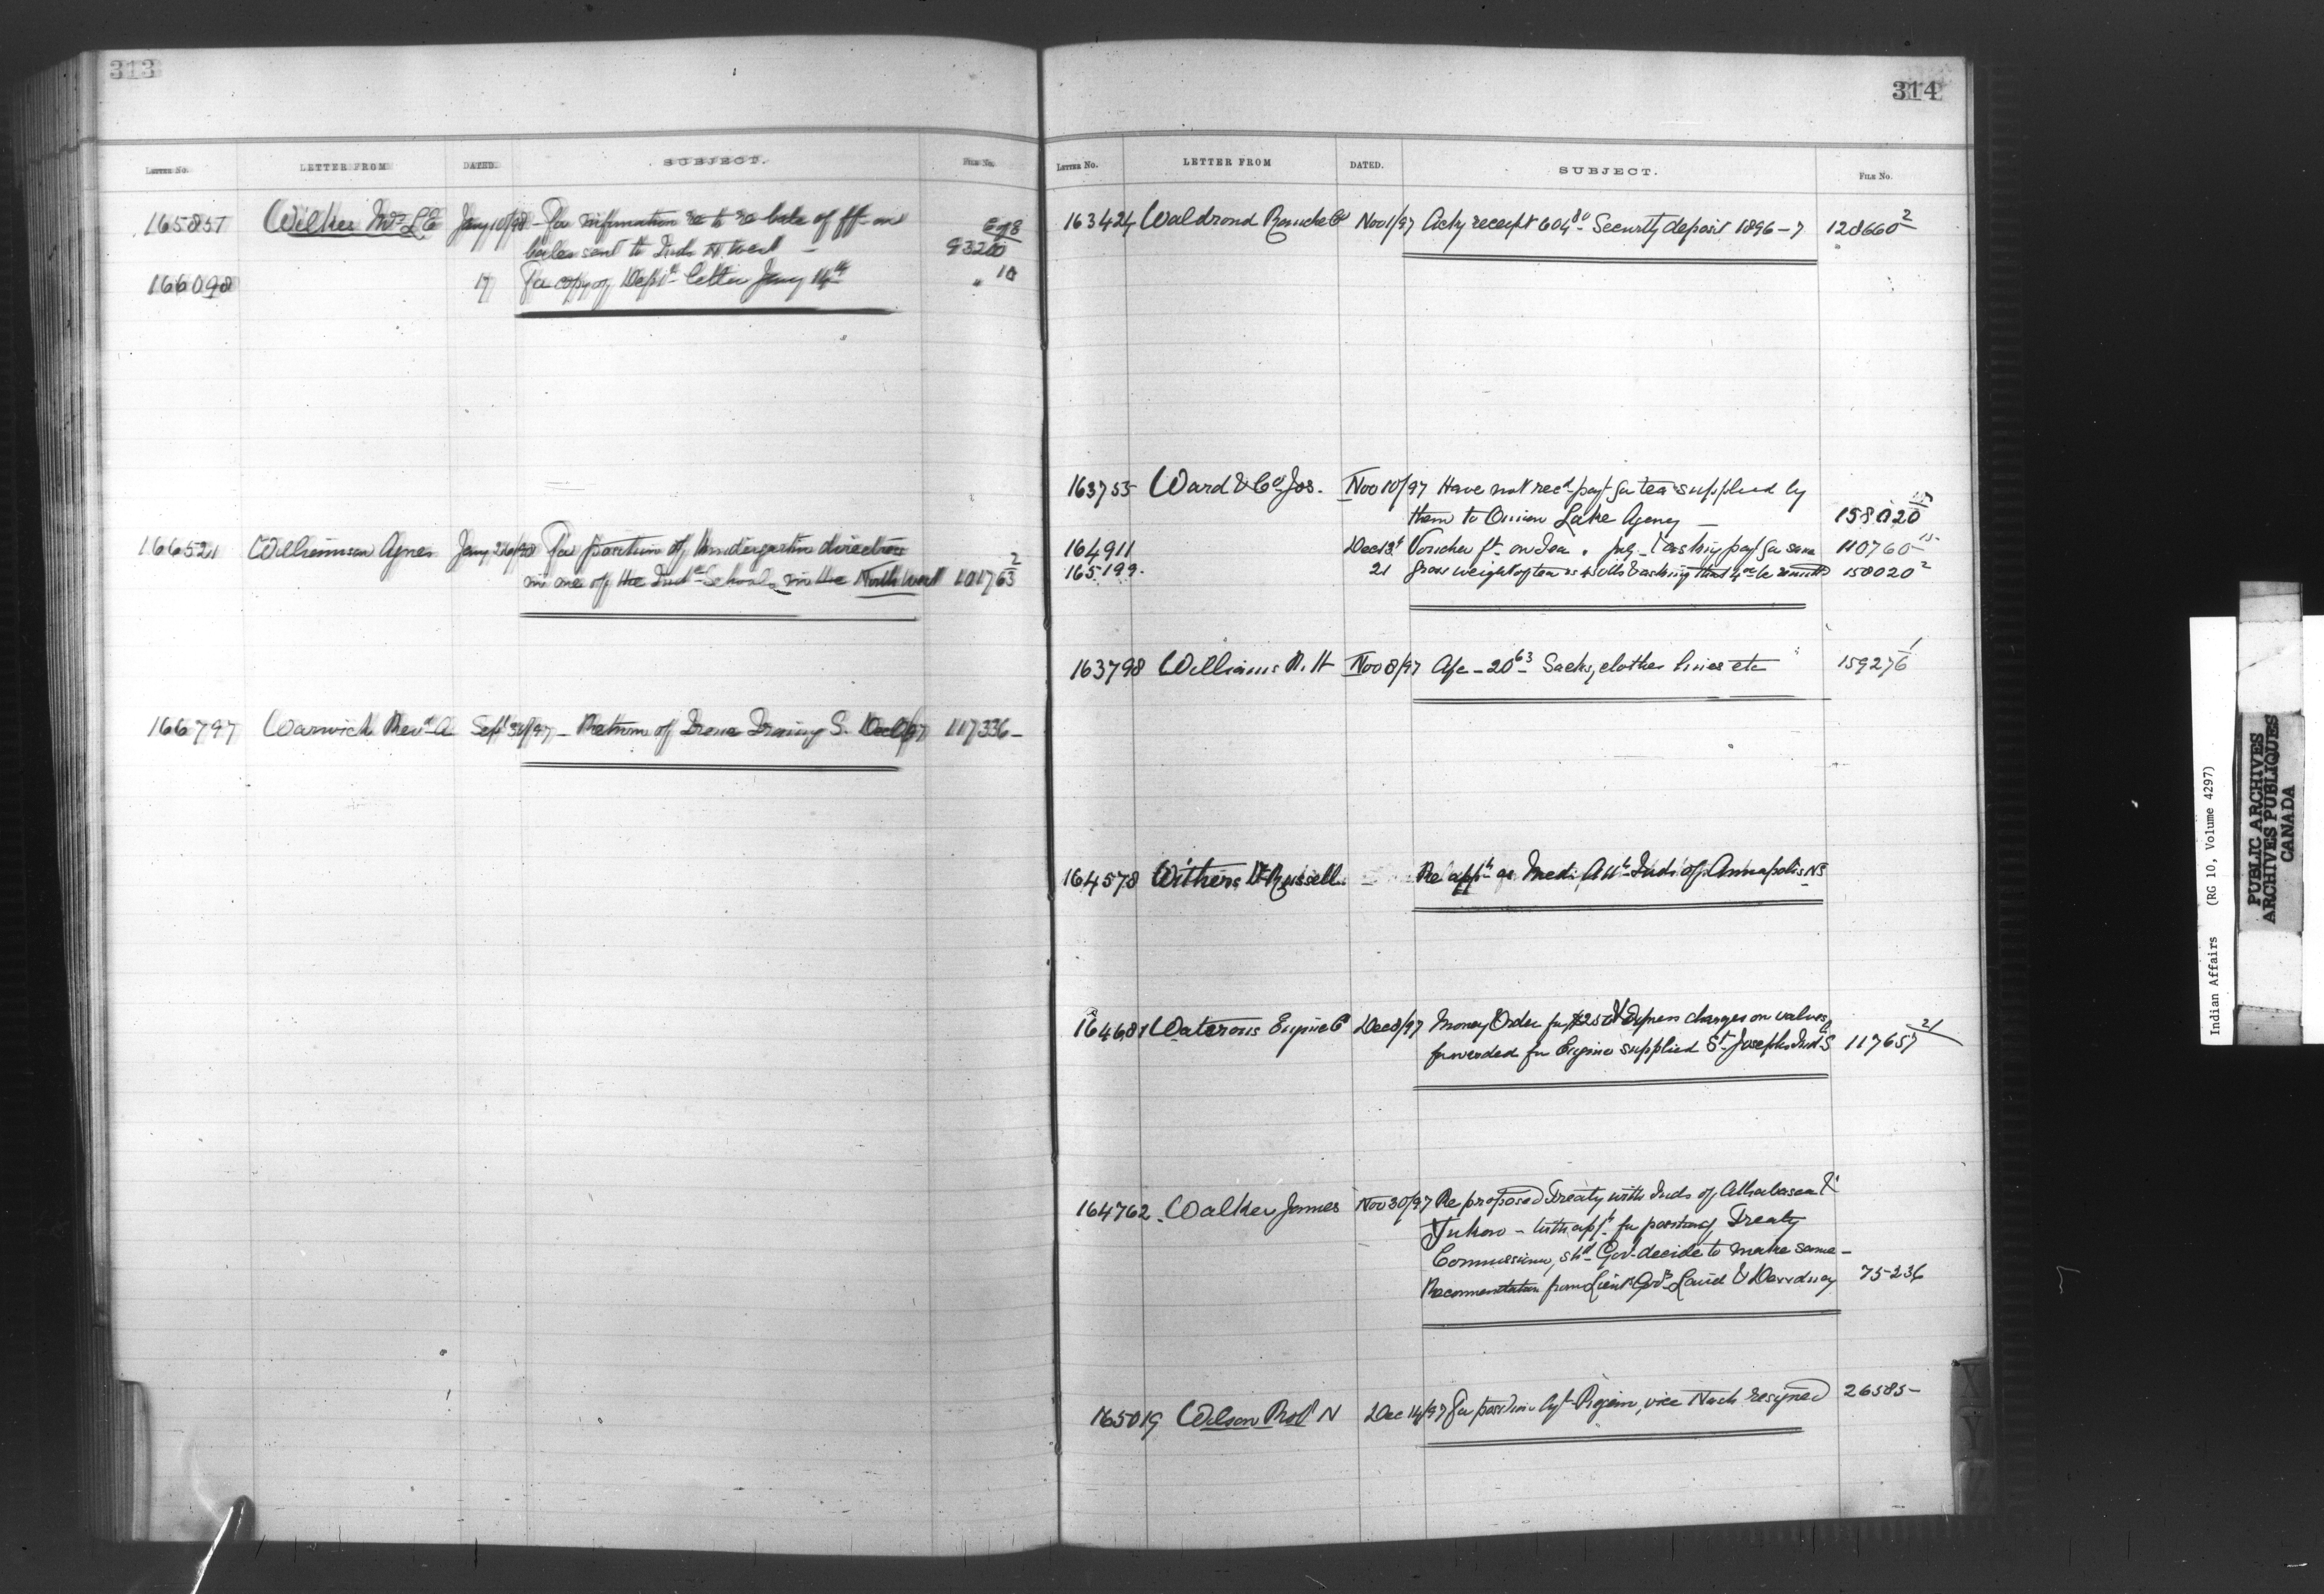 313
LETTER No. LETTER FROM DATED. SUBJECT. FILE No.
165857 Wilkes Mrs L E Jany 10/98 - For information re to re bate of fft on
bales sent to Inds N. West -
166098 17 For copy of Deptl letter Jany 14th " 10
166521 Williamson Agnes Jany 26/98 For position of Kindergarten directress
in one of the Indn Schools in the North West 101763 2
166797 Warwick Revd A Sept 30/97 - Return of Training S. 117336 -
314
LETTER No. LETTER FROM DATED. SUBJECT. FILE No.
163424 Waldrond Ranche Co Nov 1/97 Ackg receipt 604 80 Security deposit 1896-7 128660 2
163755 Ward & Co Jos. Nov 10/97 Have not recd payt for tea supplied by
them to Onion Lake Agency - 158020
164911 Dec 13 Voucher ft on Tea . & asking payt for same 110760 15
165199. 21 Gross weight of tea & asking that be remitted 158020 2
163798 Williams R. H Nov 8/97 A/c - 20 63 Sacks, clothes lines etc 159276 1
164578 Withers Dr Russell Re appt as Medl Att Inds of Annapolis NS
164681 Waterous Engine Co Dec 8/97 Money Order for Express charges on valves
forwarded for Engine supplied St Josephs Ind. S 117657 21
164762. Walker James Nov 30/97 Re proposed Treaty with Inds of Athabasca &
Yukon - with appn for position of Treaty
Commissioner, shd Govt decide to make same -
Recommendation from Lieut Govs Laird & Dewdney 75236
165019 Wilson Profl N Dec 14/97 For position Agt Regina, vice Nash resigned 26585 -
X
Y
Indian Affairs (RG 10, Volume 4297)
PUBLIC ARCHIVES
ARCHIVES PUBLIQUES
CANADA